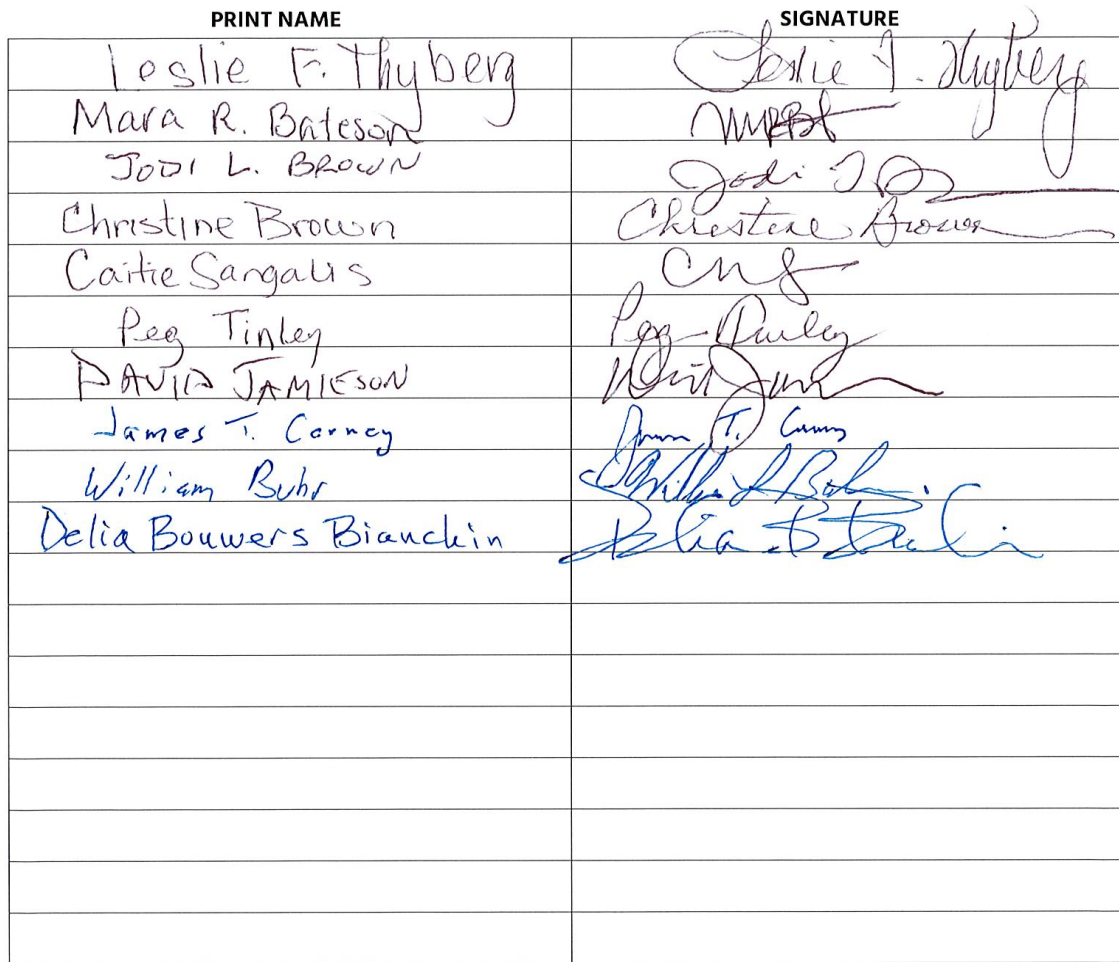 PRINT NAME SIGNATURE
Leslie F. Thyberg Leslie F. Thyberg
Mara R. Bateson
JODI L. BROWN Jodi
Christine Brown Christine Brown
Caitie Sangalis
Peg Tinley Peg Tinley
DAVID JAMIESON
James T. Carney James T. Carney
William Buhr William Buhr
Delia Bouwers Bianchin Delia B